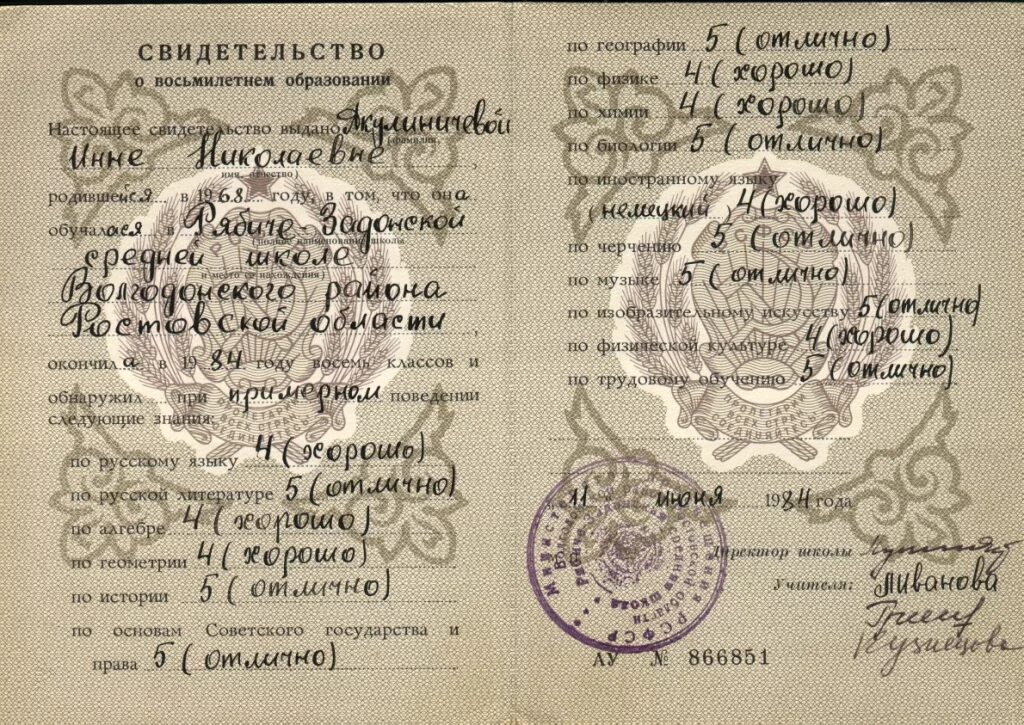 СВИДЕТЕЛЬСТВО
о восьмилетнем образовании
Настоящее свидетельство выдано Акулиничевой
(фамилия,
Инне Николаевне
имя, отчество)
родившейся в 1968 году, в том, что она
обучалася в Рябиче-Задонской
(полное наименование школы
средней школе
и место ее нахождения)
Волгодонского района
Ростовской области,
окончила в 1984 году восемь классов и
обнаружил при примерном поведении
следующие знания:
по русскому языку 4 (хорошо)
по русской литературе 5 (отлично)
по алгебре 4 (хорошо)
по геометрии 4 (хорошо)
по истории 5 (отлично)
по основам Советского государства и
права 5 (отлично)
по географии 5 (отлично)
по физике 4 (хорошо)
по химии 4 (хорошо)
по биологии 5 (отлично)
по иностранному языку
(немецкий) 4 (хорошо)
по черчению 5 (отлично)
по музыке 5 (отлично)
по изобразительному искусству 5 (отлично)
по физической культуре 4 (хорошо)
по трудовому обучению 5 (отлично)
11 июня 1984 года
Директор школы
Учителя: Иванова
Кузнецова
АУ № 866851